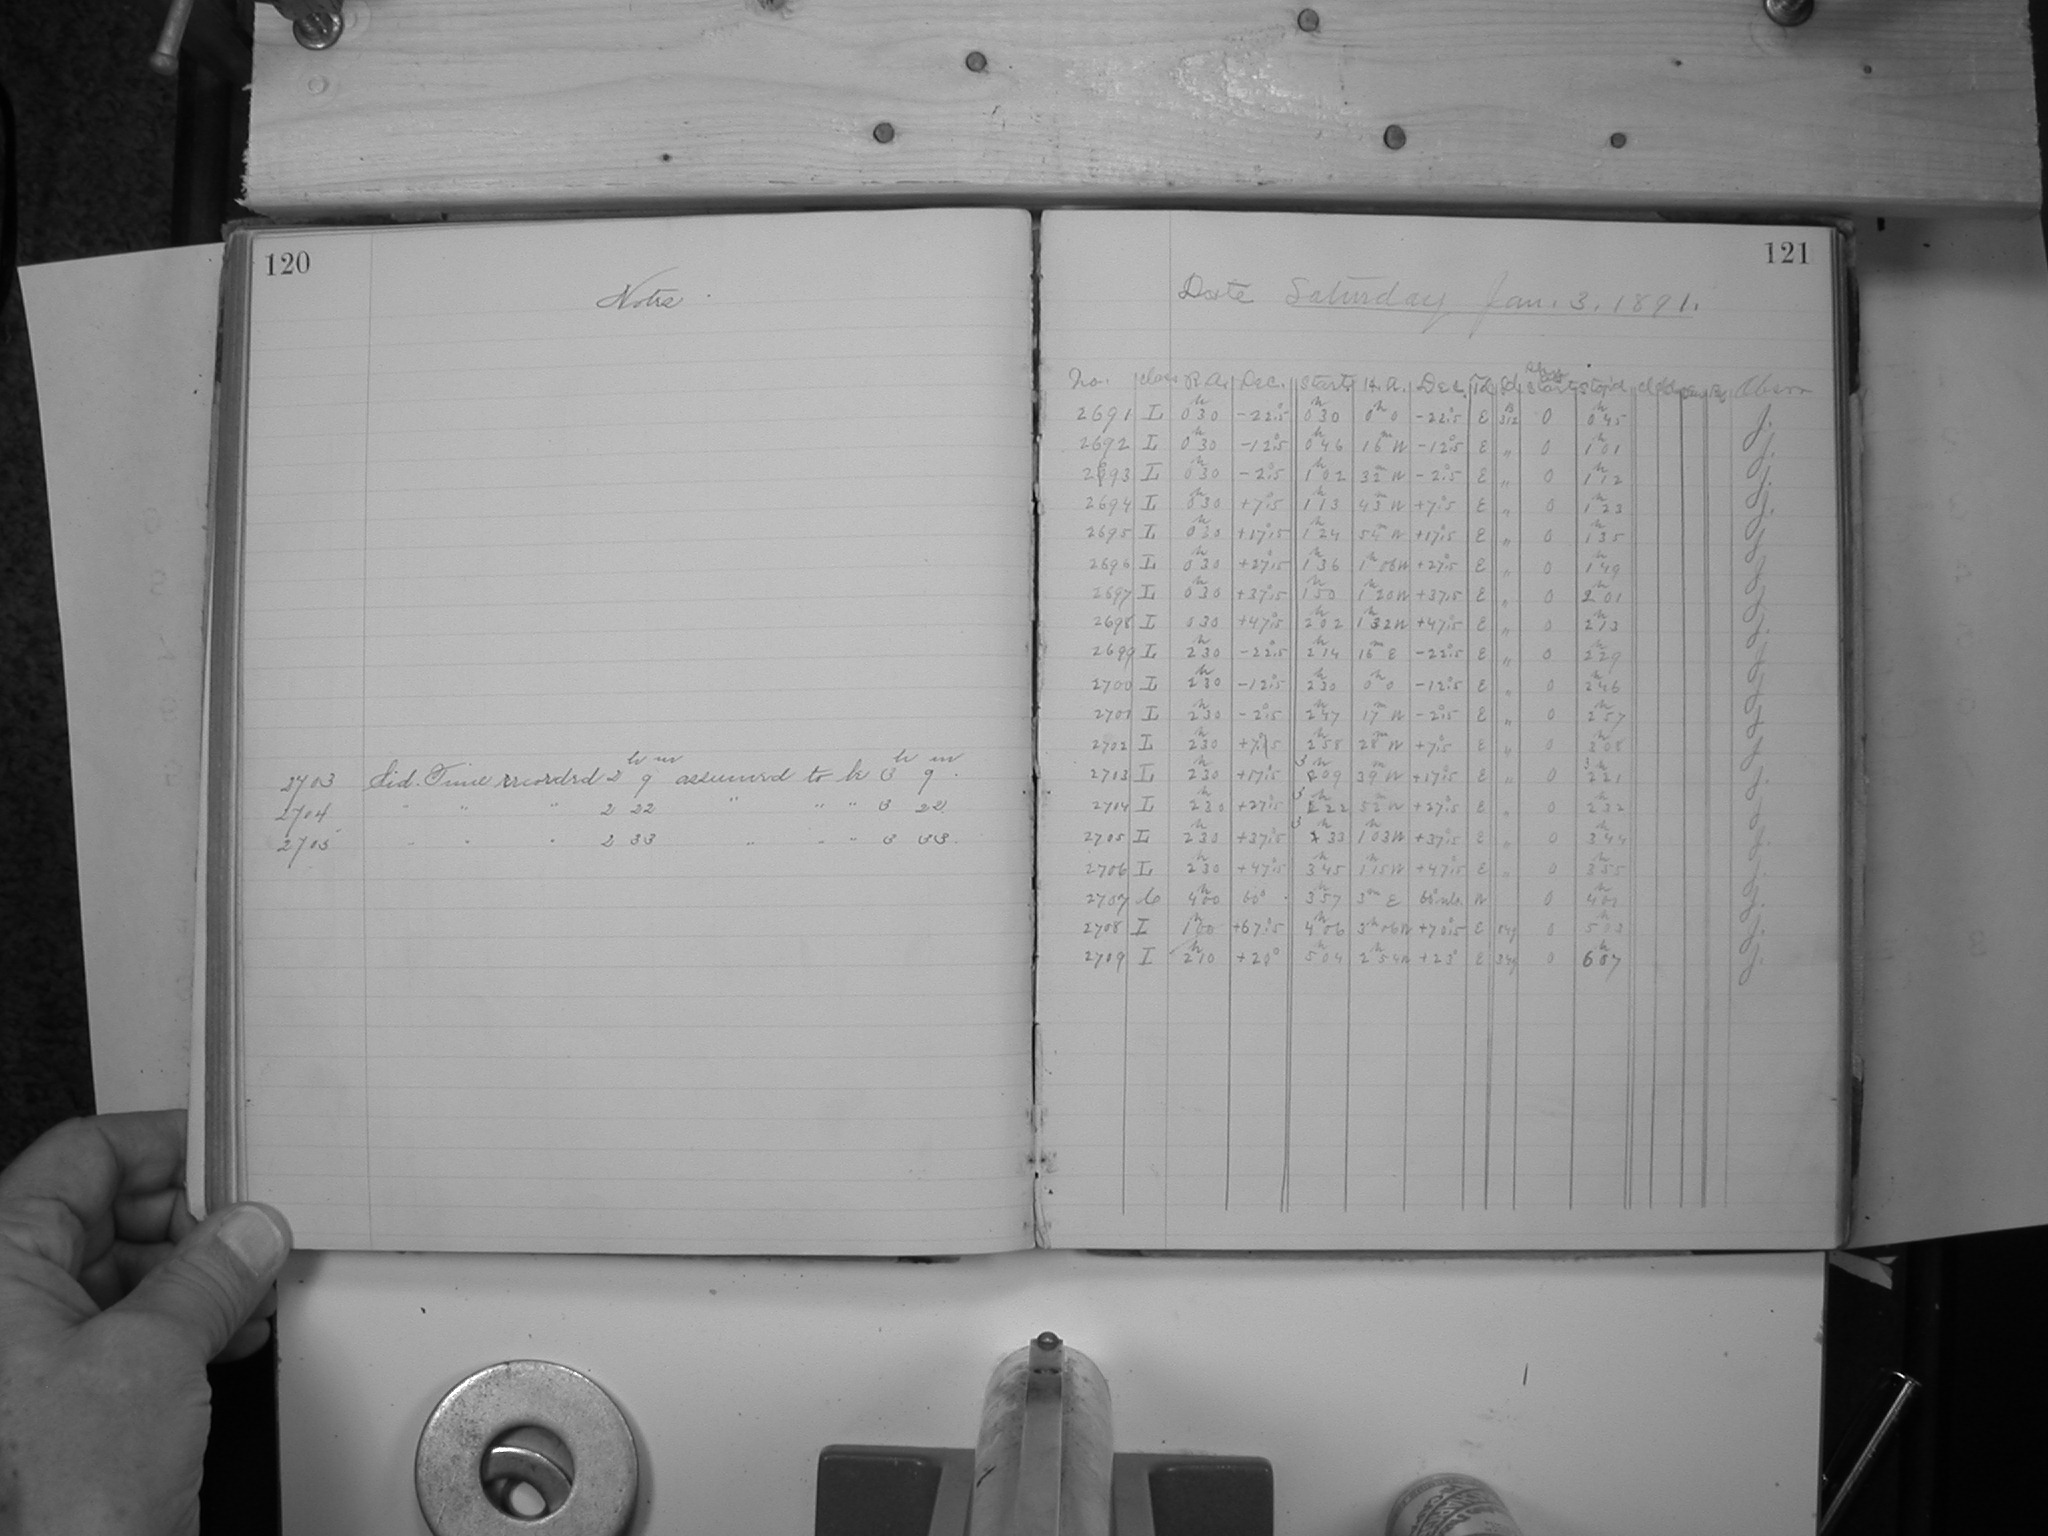 120
Notes.
2703 Sid. Time recorded 2h 9m assumed to be 3h 9m.
2704 " " " 2 22 " " " 3 22
2705 " " " 2 33 " " " 3 33.
121
Date Saturday Jan. 3. 1891.
No. Class R.A. Dec. Start H.A. Dec. Start Stop'd Obsr
2691 L 0h30 -22°.5 0h30 0h0 -22°.5 E B 312 0 0h45 J.
2692 L 0h30 -12°.5 0h46 16m W -12°.5 E " 0 1h01 J.
2693 L 0h30 -2°.5 1h02 32m W -2°.5 E " 0 1h12 J.
2694 L 0h30 +7°.5 1h13 43m W +7°.5 E " 0 1h23 J.
2695 L 0h30 +17°.5 1h24 54m W +17°.5 E " 0 1h35 J.
2696 L 0h30 +27°.5 1h36 1h06W +27°.5 E " 0 1h49 J.
2697 L 0h30 +37°.5 1h50 1h20W +37°.5 E " 0 2h01 J.
2698 L 0 30 +47°.5 2h02 1h32W +47°.5 E " 0 2h13 J.
2699 L 2h30 -22°.5 2h14 16m E -22°.5 E " 0 2h29 J.
2700 L 2h30 -12°.5 2h30 0h0 -12°.5 E " 0 2h46 J.
2701 L 2h30 -2°.5 2h47 17m W -2°.5 E " 0 2h57 J.
2702 L 2h30 +7°.5 2h58 28m W +7°.5 E " 0 3h08 J.
2703 L 2h30 +17°.5 3h09 39m W +17°.5 E " 0 3h21 J.
2704 L 2h30 +27°.5 3h22 52m W +27°.5 E " 0 J.
2705 L 2h30 +37°.5 3h33 1h03W +37°.5 E " 0 3h44 J.
2706 L 2h30 +47°.5 3h45 1h15W +47°.5 E " 0 3h55 J.
2707 C 4h00 60° 3h57 3m E W 0 4h01 J.
2708 I 1h00 +67°.5 4h06 3h06W +70°.5 E 0 5h03 J.
2709 I 2h10 +20° 5h04 2h54W +23° E 0 6h07 J.